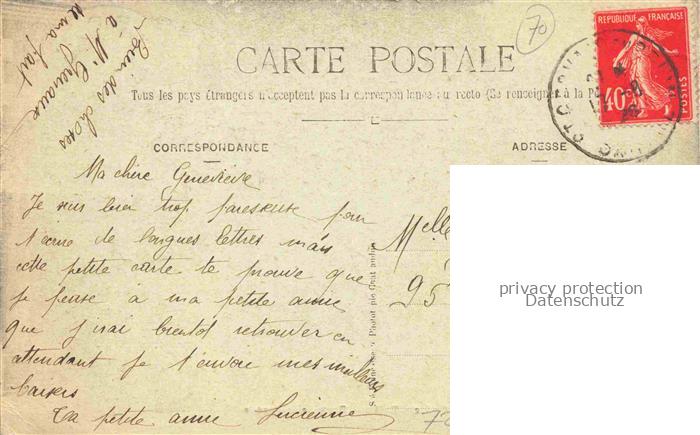 Bien des choses
à Mr
de ma part
70
CARTE POSTALE
Tous les pays étrangers n'acceptent pas la correspondance au recto (Se renseigner à la P
REPUBLIQUE FRANÇAISE
40
POSTES
CORRESPONDANCE
ADRESSE
Ma chère Geneviève
Je suis bien trop paresseuse pour
t'écrire de longues lettres mais
cette petite carte te prouve que
je pense à ma petite amie
que j'irai bientôt retrouver en
attendant je t'envoie mes meilleurs
baisers
Ta petite amie Lucienne
Melle
95
privacy protection
Datenschutz